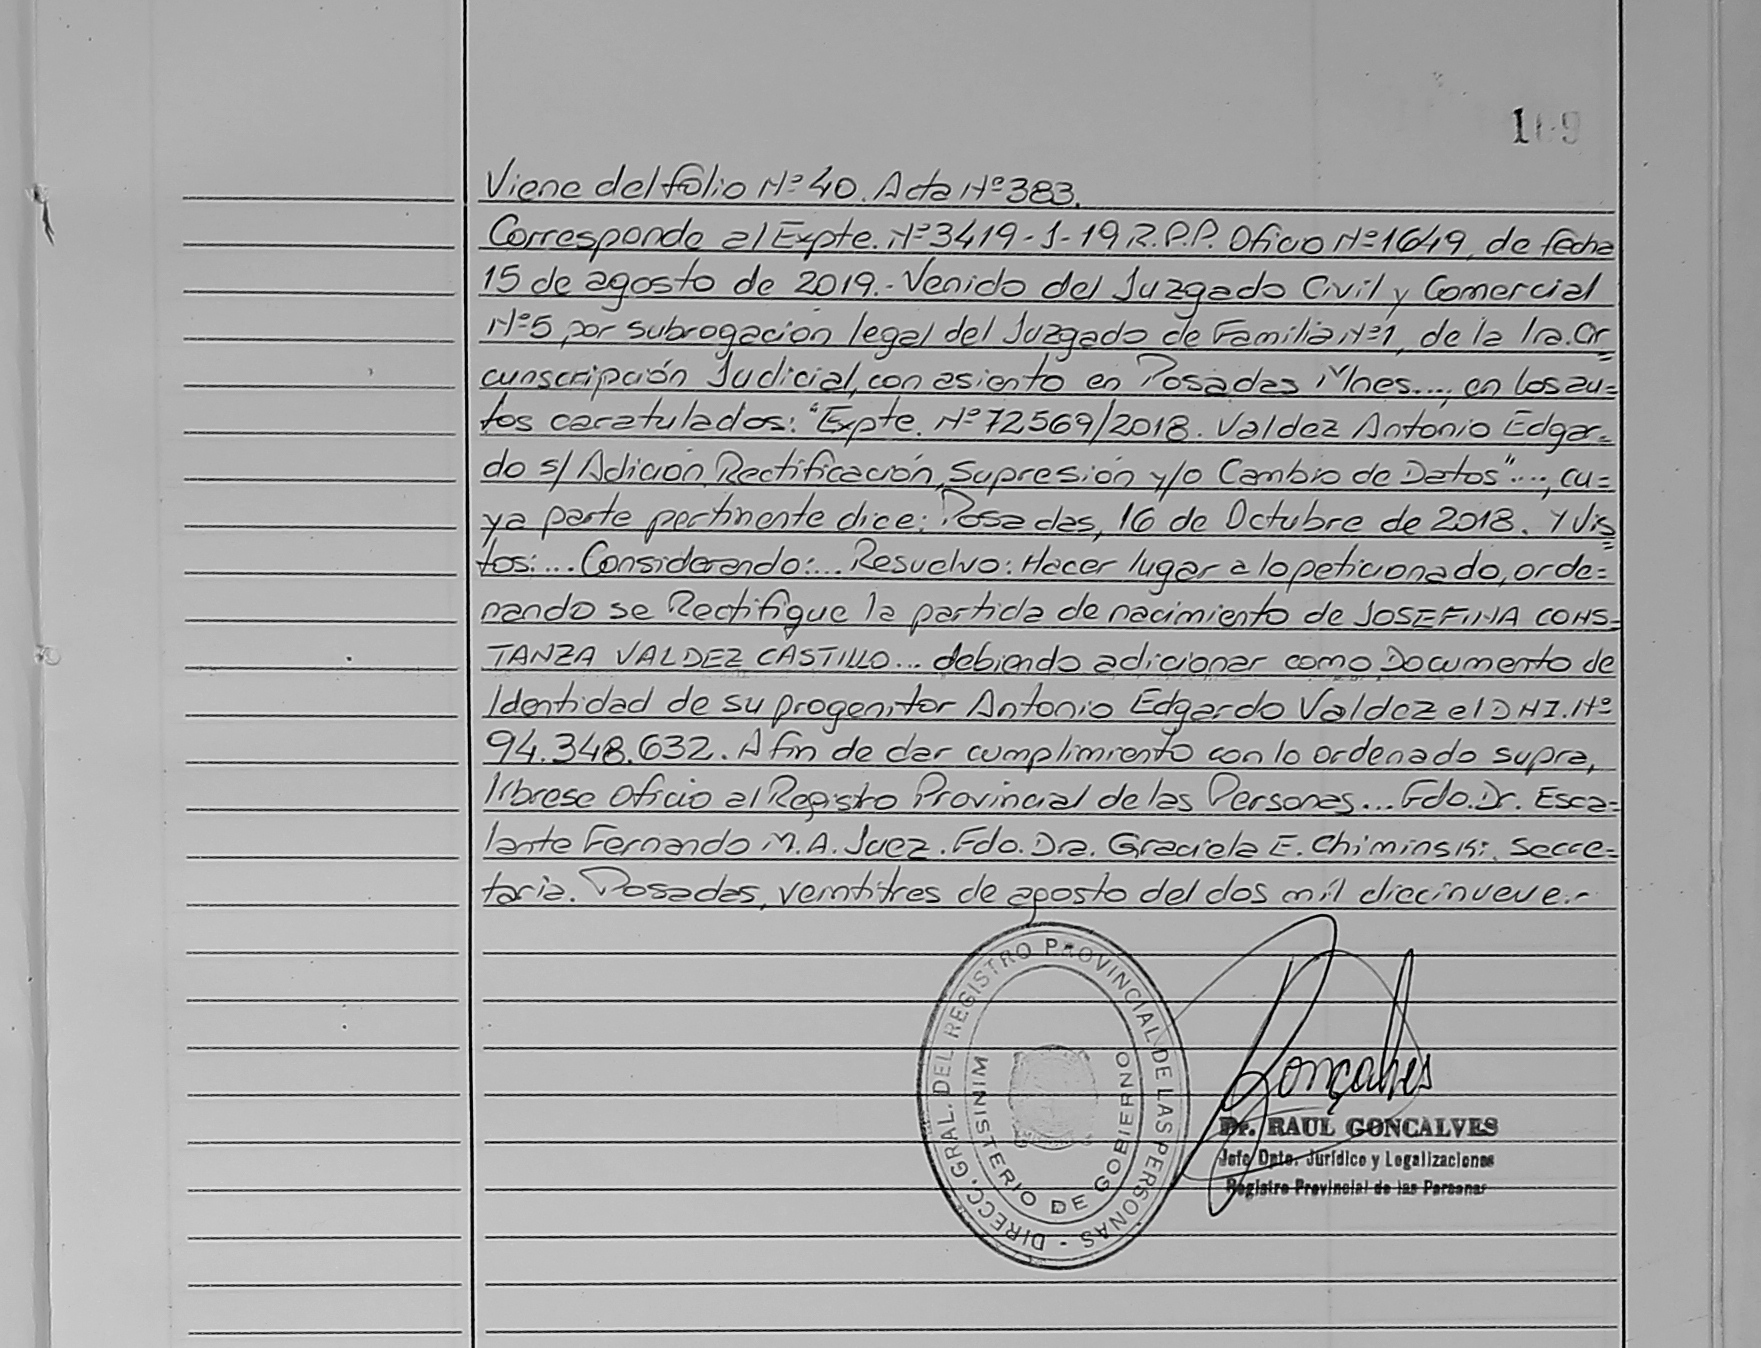 Viene del folio Nº 40. Acta Nº 383.
Corresponde al Expte. Nº 3419-J-19 R.P.P. Oficio Nº 1649, de fecha
15 de agosto de 2019.- Venido del Juzgado Civil y Comercial
Nº 5, por subrogación legal del Juzgado de Familia Nº 1, de la 1ra. Cir=
cunscripción Judicial, con asiento en Posadas Mnes...., en los au=
tos caratulados: "Expte. Nº 72569/2018. Valdez Antonio Edgar=
do s/ Adición, Rectificación, Supresión y/o Cambio de Datos"...., cu=
ya parte pertinente dice: Posadas, 16 de Octubre de 2018. Y Vis=
tos:... Considerando:... Resuelvo: Hacer lugar a lo peticionado, orde=
nando se Rectifique la partida de nacimiento de JOSEFINA CONS=
TANZA VALDEZ CASTILLO... debiendo adicionar como Documento de
Identidad de su progenitor Antonio Edgardo Valdez el DNI. Nº
94.348.632. A fin de dar cumplimiento con lo ordenado supra,
líbrese Oficio al Registro Provincial de las Personas... Fdo. Dr. Esca=
lante Fernando M.A. Juez. Fdo. Dra. Graciela E. Chiminski. Secre=
taria. Posadas, veintitres de agosto del dos mil diecinueve.-
DIRECC. GRAL. DEL REGISTRO PROVINCIAL DE LAS PERSONAS -
MINISTERIO DE GOBIERNO
Gonçalves
Dr. RAUL GONCALVES
Jefe Dpto. Jurídico y Legalizaciones
Registro Provincial de las Personas